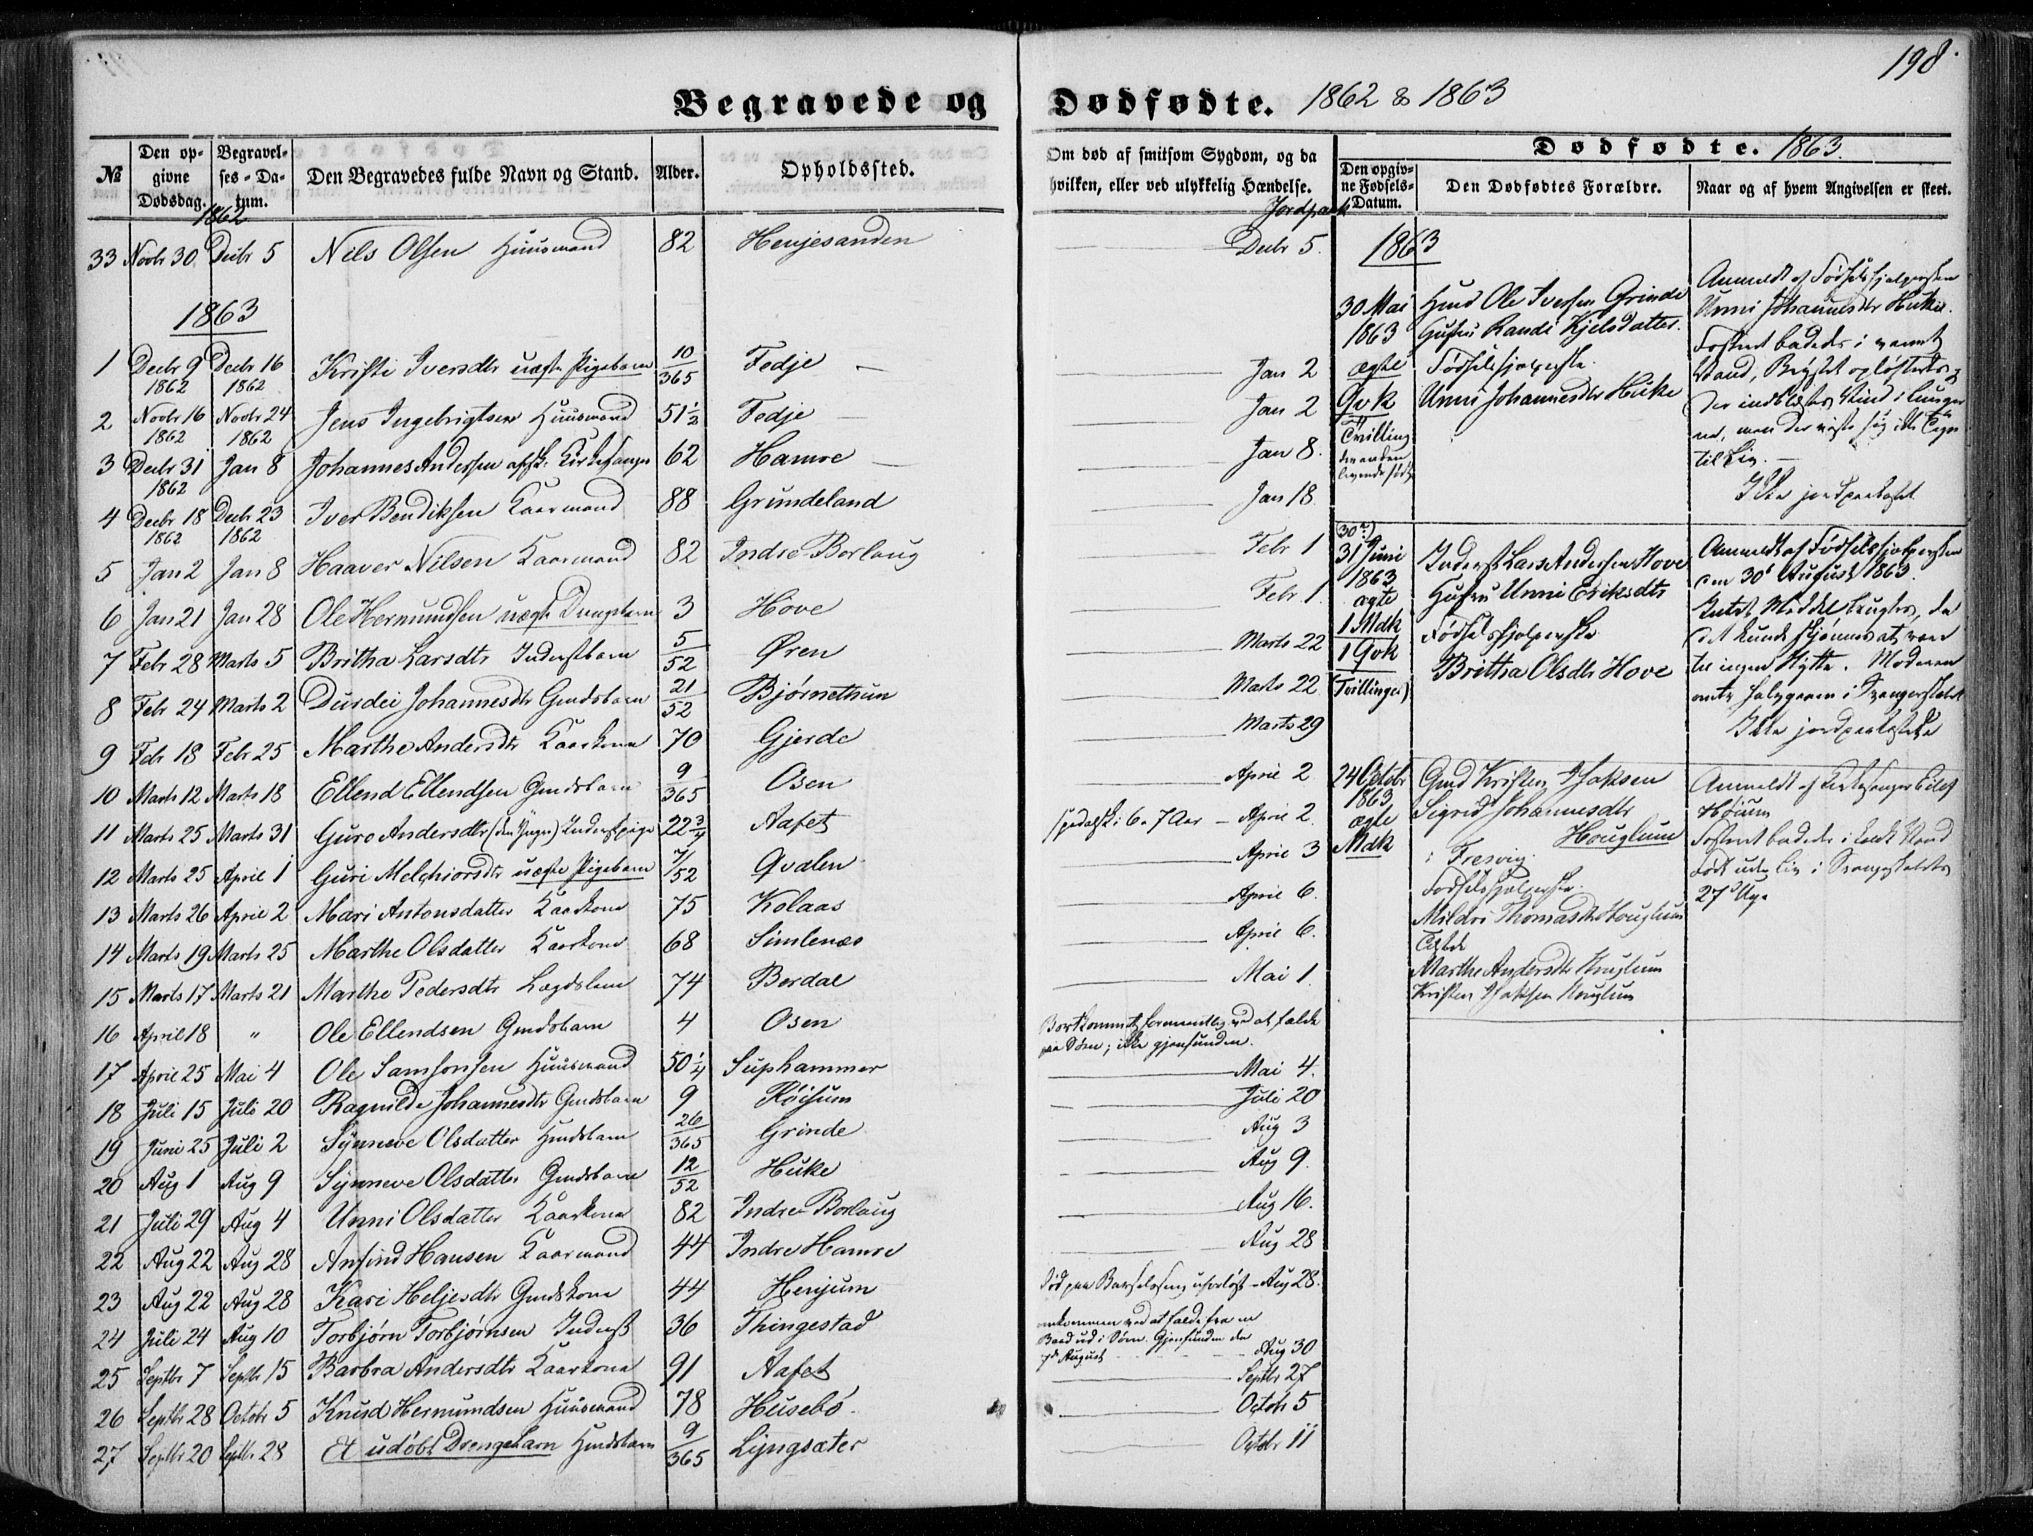 198.
Begravede og Dødfødte. 1862 & 1863
№ Den opgivne Dødsdag. Begravelses-Datum. Den Begravedes fulde Navn og Stand. Alder. Opholdssted. Om død af smitsom Sygdom, og da hvilken, eller ved ulykkelig Hændelse.
1862 Jordpaak
33 Novbr 30. Decbr 5 Nils Olsen Huusmand 82 Henjesanden Decbr 5.
1863
1 Decbr 9 1862 Decbr 16 1862 Kristi Iversdtr uægte Pigebarn 10/365 Fedje Jan 2
2 Novbr 16 1862 Novbr 24 1862 Jens Ingebrigtsen Huusmand 51 1/2 Fedje Jan 2
3 Decbr 31 1862 Jan 8 Johannes Andersen afsk. Kirkesanger 62 Hamre Jan 8.
4 Decbr 18 1862 Decbr 23 1862 Iver Bendiksen Kaarmand 88 Grundeland Jan 18.
5 Jan 2 Jan 8 Haaver Nilsen Kaarmand 82 Indre Borlaug Febr 1
6 Jan 21 Jan 28 Ole Hermundsen uægte Drengebarn 3 Hove Febr 1
7 Febr 28 Marts 5 Britha Larsdtr Inderstbarn 5/52 Øren Marts 22
8 Febr 24 Marts 2 Durdei Johannesdtr Gmdsbarn 21/52 Bjørnetun Marts 22
9 Febr 18 Febr 25 Marthe Andersdtr Kaarkone 70 Gjerde Marts 29
10 Marts 12 Marts 18 Ellend Ellendsen Gmdsbarn 9/365 Osen April 2
11 Marts 25 Marts 31 Guro Andersdtr (den Yngre) Inderstpige 22 3/4 Aafet spedalsk i 6 a 7 Aar – April 2.
12 Marts 25 April 1 Guri Melchiorsdtr uægte Pigebarn 7/52 Qvalen April 3
13 Marts 26 April 2 Mari Antonsdatter Kaarkone 75 Kolaas April 6.
14 Marts 19 Marts 25 Marthe Olsdatter Kaarkone 68 Simlenæs April 6.
15 Marts 17 Marts 21 Marthe Pedersdtr Lægdslem 74 Bordal Mai 1.
16 April 18 " Ole Ellendsen Gmdsbarn 4 Osen Bortkommet formentlig ved at falde paa Søen; ikke gjenfunden.
17 April 25 Mai 4 Ole Samsonsen Huusmand 50 1/4 Suphammer Mai 4.
18 Juli 15 Juli 20 Ragnilde Johannesdtr Gmdsbarn 9 Røisum Juli 20
19 Juni 25 Juli 2 Synneve Olsdatter Hmdsbarn 26/365 Grinde Aug 3
20 Aug 1 Aug 9 Synneve Olsdatter Gmdsbarn 12/52 Huke Aug 9.
21 Juli 29 Aug 4 Unni Olsdatter Kaarkone 82 Indre Borlaug Aug 16.
22 Aug 22 Aug 28 Anfind Hansen Kaarmand 44 Indre Hamre Aug 28
23 Aug 22 Aug 28 Kari Heljesdtr Gmdskone 44 Henjum Død paa Barselseng uforløst – Aug 28.
24 Juli 24 Aug 10 Torbjørn Torbjørnsen Inderst 36 Thingestad omkommen ved at falde fra en Baad ud i Søen. Gjenfunden den 7de August Aug 30
25 Septbr 7 Septbr 15 Barbra Andersdtr Kaarkone 91 Aafet Septbr 27
26 Septbr 28 Octobr 5 Knud Hermundsen Huusmand 78 Husebø. Octobr 5
27 Septbr 20 Septbr. 28 Et udøbt Drengebarn Hmdsbarn 9/365 Lyngsæter Octobr 11
Dødfødte. 1863.
Den opgivne Fødsels-Datum. Den Dødfødtes Forældre. Naar og af hvem Angivelsen er skeet.
1863
30 Mai 1863 ægte Qvk Tvilling den anden levende født
Hmd Ole Iversen Grinde
Hustru Randi Kjelsdatter.
Fødselshjelperske
Unni Johannesdtr Huke
Anmeldt af Fødselshjelpersken
Unni Johannesdtr Huke.
Fosteret badedes i varmt
Vand, Brystet
der indblæstes Vind i Lunger
ne, men der viste sig ikke Tegn
til Liv.
Ikke jordpaakastet
30 ?) 31 Juni 1863 ægte 1 Mdk 1 Qvk (Tvillinger)
Inderst Lars Andersen Hove
Hustru Unni Eriksdtr
Fødselshjelperske
Britha Olsdtr Hove
Anmeldt af Fødselshjelpersken
den 30te August 1863.
Intet Middel brugtes, da
det kunde skjønnes at være
til ingen Nytte. Moderen
i Svangerskabet
Ikke jordpaakastede
24 Octobr 1863 ægte Mdk
Gmd Kristen Isaksen
Sigrid Johannesdtr
Houglum
i Fresvig.
Fødselshjelperske.
Mildri Thomasdtr Houglum
Tilstede
Marthe Andersdtr Houglum
Kristen Isaksen Houglum
Anmeldt af Kirkesanger Eilef
Høium
Fosteret badedes i Vand
født uden Liv i Svangerskabets
27de Uge